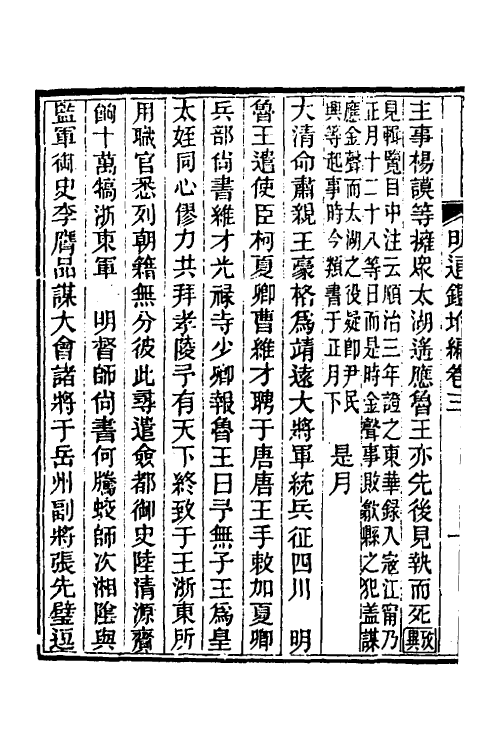 明通鑑坿編卷三
一
主事楊謨等擁衆太湖遙應魯王亦先後見執而死攷異
見輯覽目中注云順治三年證之東華錄入寇江甯乃
正月十二十八等日而是時金聲事敗歙縣之犯蓋謀
應金聲而太湖之役疑卽尹民
興等起事時今類書于正月下 是月
大清命肅親王豪格爲靖遠大將軍統兵征四川 明
魯王遣使臣柯夏卿曹維才聘于唐唐王手敕加夏卿
兵部尙書維才光祿寺少卿報魯王曰予無子王爲皇
太姪同心僇力共拜孝陵予有天下終致于王浙東所
用職官悉列朝籍無分彼此尋遣僉都御史陸清源齎
餉十萬犒浙東軍 明督師尙書何騰蛟師次湘陰與
監軍御史李膺品謀大會諸將于岳州副將張先璧逗